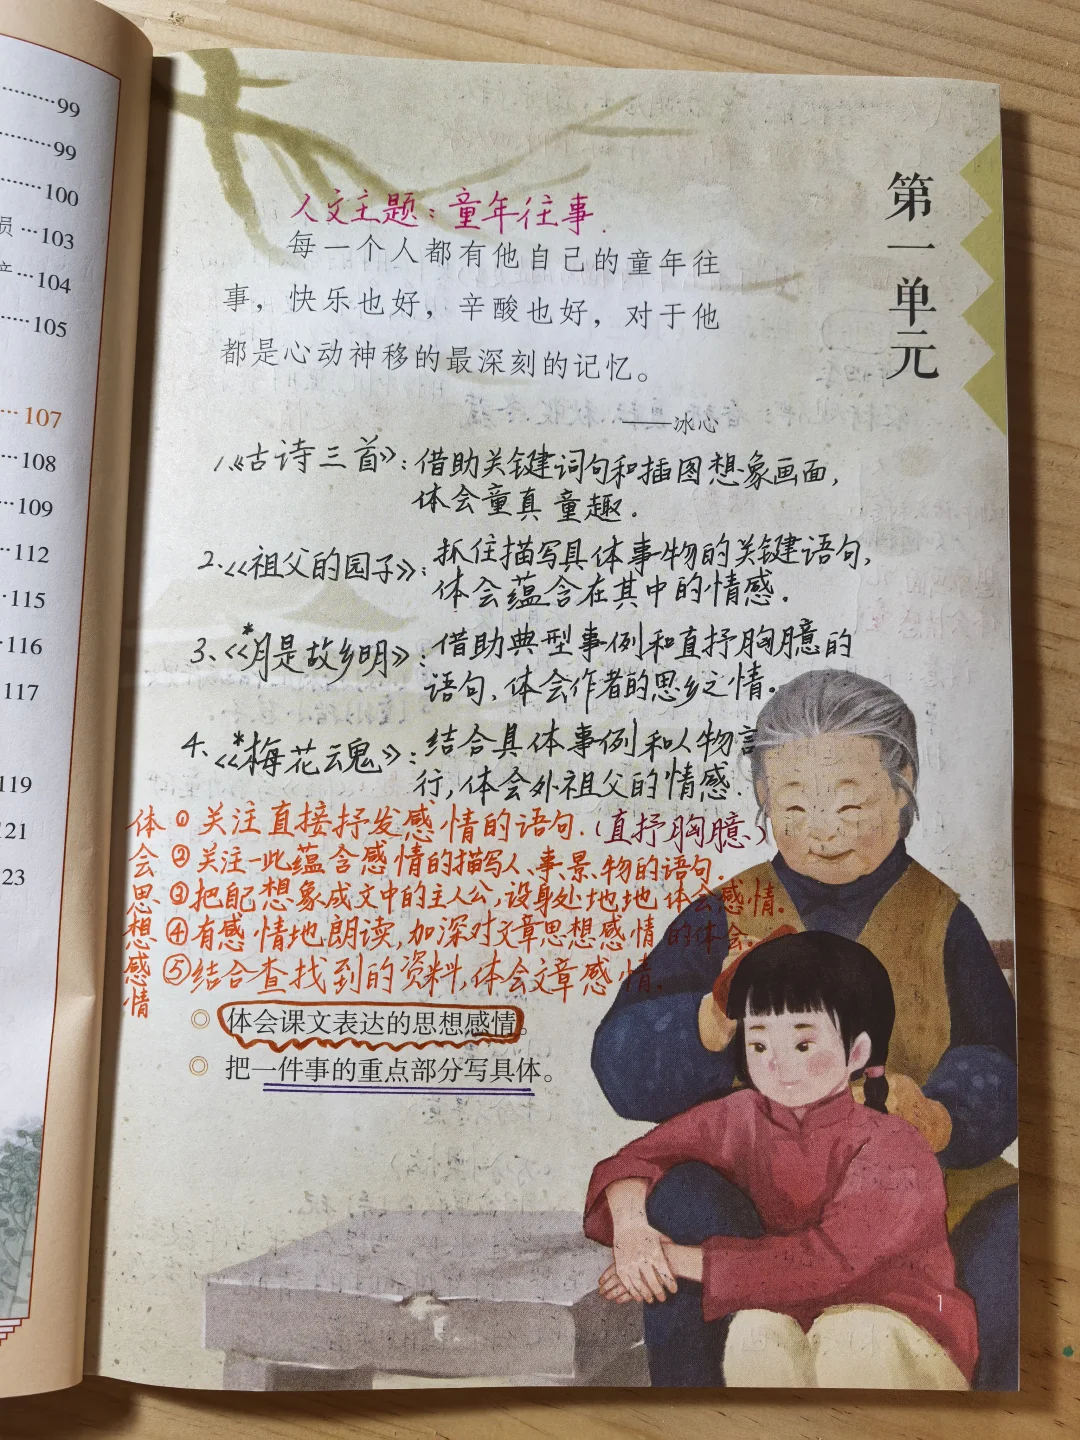 99
99
100
员 … 103
104
105
107
108
109
112
115
116
117
119
121
23
第一单元
人文主题：童年往事.
每一个人都有他自己的童年往
事，快乐也好，辛酸也好，对于他
都是心动神移的最深刻的记忆。
——冰心
1.《古诗三首》：借助关键词句和插图想象画面，
体会童真童趣.
2.《祖父的园子》：抓住描写具体事物的关键语句，
体会蕴含在其中的情感.
3、《*月是故乡明》：借助典型事例和直抒胸臆的
语句，体会作者的思乡之情。
4、《*梅花魂》：结合具体事例和人物言
行，体会外祖父的情感.
体会思想感情
①关注直接抒发感情的语句.（直抒胸臆、）
②关注一些蕴含感情的描写人、事、景、物的语句.
③把自己想象成文中的主人公，设身处地地体会感情.
④有感情地朗读，加深对文章思想感情的体会.
⑤结合查找到的资料，体会文章感情.
◎ 体会课文表达的思想感情。
◎ 把一件事的重点部分写具体。
1